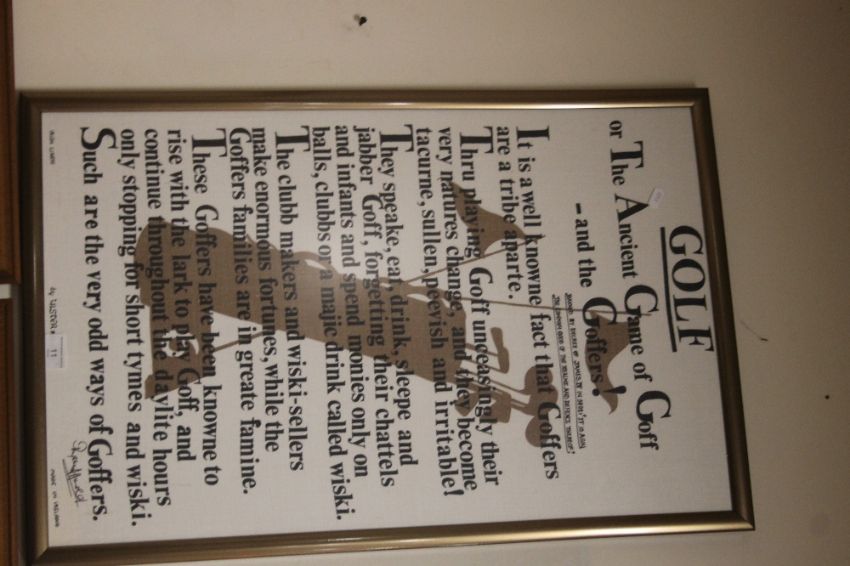 GOLF
or The Ancient Game of Goff
- and the Goffers!
It is a well knowne fact that Goffers
are a tribe aparte.
Thru playing Goff unceasingly their
very natures change, and they become
tacurne, sullen, peevish and irritable!
They speake, eat, drink, sleepe and
jabber Goff, forgetting their chattels
and infants and spend monies only on
balls, clubbs or a majic drink called wiski.
The clubb makers and wiski-sellers
make enormous fortunes, while the
Goffers families are in greate famine.
These Goffers have been knowne to
rise with the lark to play Goff, and
continue throughout the daylite hours
only stopping for short tymes and wiski.
Such are the very odd ways of Goffers.
IRISH LINEN
by ULSTER
11
MADE IN IRELAND